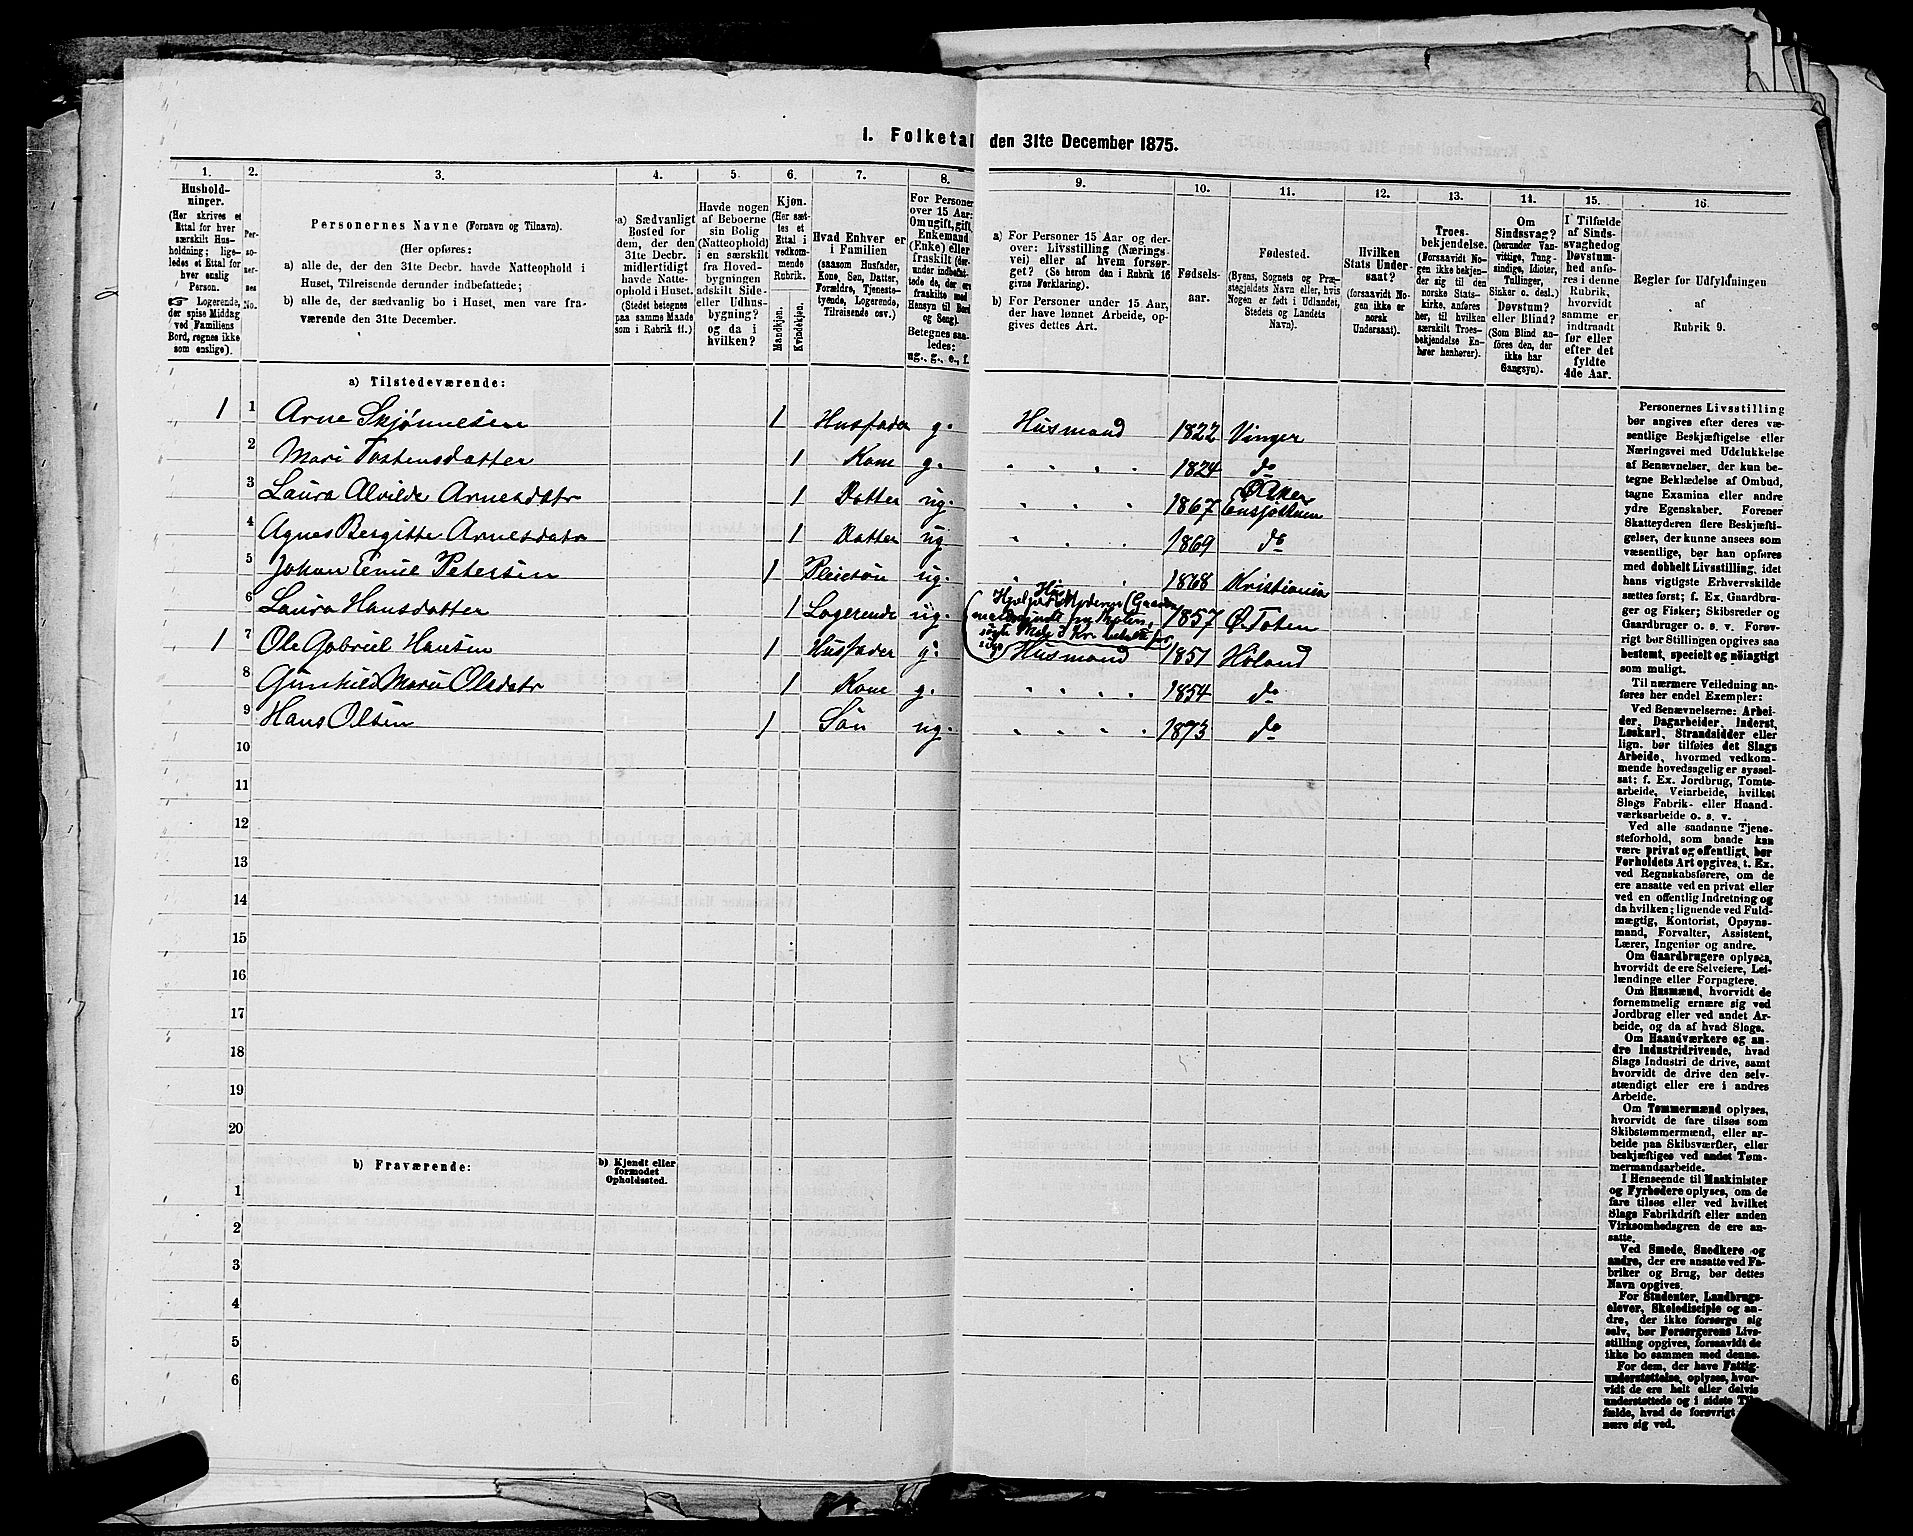 1. Folketal den 31te December 1875.
1.
Hushold-
ninger.
(Her skrives et
Ettal for hver
særskilt Hus-
holdning; lige-
ledes et Ettal for
hver enslig
Person.
☞ Logerende,
der spise Middag
ved Familiens
Bord, regnes ikke
som enslige).
2.
Per-
so-
ner-
nes
No.
3.
Personernes Navne (Fornavn og Tilnavn).
(Her opføres:
a) alle de, der den 31te Decbr. havde Natteophold i
Huset, Tilreisende derunder indbefattede;
b) alle de, der sædvanlig bo i Huset, men vare fra-
værende den 31te December.
4.
a) Sædvanligt
Bosted for
dem, der den
31te Decbr.
midlertidigt
havde Natte-
ophold i Huset.
(Stedet betegnes
paa samme Maade
som i Rubrik 11.)
5.
Havde nogen
af Beboerne
sin Bolig
(Natteophold)
i en særskilt
fra Hoved-
bygningen
adskilt Side-
eller Udhus-
bygning?
og da i
hvilken?
6.
Kjøn.
(Her sæt-
tes et
Ettal i
vedkom-
mende
Rubrik.
Mandkjøn.
Kvindekjøn.
7.
Hvad Enhver er
i Familien
(saasom Husfader,
Kone, Søn, Datter,
Forældre, Tjeneste-
tyende, Logerende,
Tilreisende osv.)
8.
For Personer
over 15 Aar:
Om ugift, gift,
Enkemand
(Enke) eller
fraskilt (der-
under indbefat-
tede de, der ere
fraskilte med
Hensyn til Bord
og Seng).
Betegnes saa-
ledes:
ug., g., e., f.
9.
a) For Personer 15 Aar og der-
over: Livsstilling (Nærings-
vei) eller af hvem forsør-
get? (Se herom den i Rubrik 16
givne Forklaring).
b) For Personer under 15 Aar,
der have lønnet Arbeide, op-
gives dettes Art.
10.
Fødsels-
aar.
11.
Fødested.
(Byens, Sognets og Præ-
stegjeldets Navn eller, hvis
Nogen er født i Udlandet,
Stedets og Landets
Navn).
12.
Hvilken
Stats Under-
saat?
(forsaavidt No-
gen ikke er
norsk
Undersaat).
13.
Troes-
bekjendelse.
(Forsaavidt No-
gen ikke bekjen-
der sig til den
norske Stats-
kirke, anføres
her, til hvilken
særskilt Troes-
bekjendelse En-
hver henhører).
14.
Om
Sindssvag?
(herunder Van-
vittige, Tung-
sindige, Idioter,
Tullinger,
Sinker o. desl.)
Døvstum?
eller Blind?
(Som Blind an-
føres den, der
ikke har
Gangsyn).
15.
I Tilfælde
af Sinds-
svaghed og
Døvstum-
hed anfø-
res i denne
Rubrik,
hvorvidt
samme er
indtraadt
før eller
efter det
fyldte
4de Aar.
16.
Regler for Udfyldningen
af
Rubrik 9.
a) Tilstedeværende:
1 1 Arne Skjønnesen 1 Husfader g. Husmand 1822 Vinger
2 Mari Tostensdatter 1 Kone g. 1824 do
3 Laura Alvilde Arnesdatr 1 Datter ug. 1867 Ø Aker
4 Agnes Bergitte Arnesdatr 1 Datter ug 1869 do
5 Johan Emil Petersen 1 Pleiesøn ug. 1868 Kristiania
6 Laura Hansdatter 1 Logerende ug. 1857 Ø. Toten
1 7 Ole Gabriel Hansen 1 Husfader g. Husmand 1851 Høland
8 Gunhild Marie Olsdatr 1 Kone g. 1854 do
9 Hans Olsen 1 Søn ug. 1873 do
10
11
12
13
14
15
16
17
18
19
20
b) Fraværende:
b) Kjendt eller
formodet
Opholdssted.
1
2
3
4
5
6
Personernes Livsstilling
bør angives efter deres væ-
sentlige Beskjæftigelse eller
Næringsvei med Udelukkelse
af Benævnelser, der kun be-
tegne Beklædelse af Ombud,
tagne Examina eller andre
ydre Egenskaber. Forener
Skatteyderen flere Beskjæfti-
gelser, der kunne ansees som
væsentlige, bør han opføres
med dobbelt Livsstilling, idet
hans vigtigste Erhvervskilde
sættes først; f. Ex. Gaardbru-
ger og Fisker; Skibsreder og
Gaardbruger o. s. v. Forøv-
rigt bør Stillingen opgives saa
bestemt, specielt og nøiagtigt
som muligt.
Til nærmere Veiledning an-
føres her endel Exempler:
Ved Benævnelserne: Arbei-
der, Dagarbeider, Inderst,
Løskarl, Strandsidder eller
lign. bør tilføies det Slags
Arbeide, hvormed vedkom-
mende hovedsagelig er syssel-
sat; f. Ex. Jordbrug, Tomte-
arbeide, Veiarbeide, hvilket
Slags Fabrik- eller Haand-
værksarbeide o. s. v.
Ved alle saadanne Tjene-
steforhold, som baade kan
være privat og offentligt, bør
Forholdets Art opgives, t. Ex.
ved Regnskabsførere, om de
ere ansatte ved en privat eller
ved en offentlig Indretning og
da hvilken; lignende ved Fuld-
mægtig, Kontorist, Opsyns-
mand, Forvalter, Assistent,
Lærer, Ingeniør og andre.
Om Gaardbrugere oplyses,
hvorvidt de ere Selveiere, Lei-
lændinge eller Forpagtere.
Om Husmænd, hvorvidt de
fornemmelig ernære sig ved
Jordbrug eller ved andet Ar-
beide, og da af hvad Slags.
Om Haandværkere og an-
dre Industridrivende, hvad
Slags Industri de drive, samt
hvorvidt de drive den selv-
stændigt eller ere i andres
Arbeide.
Om Tømmermænd oplyses,
hvorvidt de fare tilsøs som
Skibstømmermænd, eller ar-
beide paa Skibsværfter, eller
beskjæftiges ved andet Tøm-
mermandsarbeide.
I Henseende til Maskinister
og Fyrbødere oplyses, om de
fare tilsøs eller ved hvilket
Slags Fabrikdrift eller anden
Virksomhedsgren de ere an-
satte.
Ved Smede, Snedkere og
andre, der ere ansatte ved Fa-
briker og Brug, bør dettes
Navn opgives.
For Studenter, Landbrugs-
elever, Skoledisciple og an-
dre, der ikke forsørge sig
selv, bør Forsørgerens Livs-
stilling opgives, forsaavidt de
ikke bo sammen med denne.
For dem, der have Fattig-
understøttelse, oplyses, hvor-
vidt de ere helt eller delvis
understøttede og i sidste Til-
fælde, hvad de forøvrigt
nære sig ved.